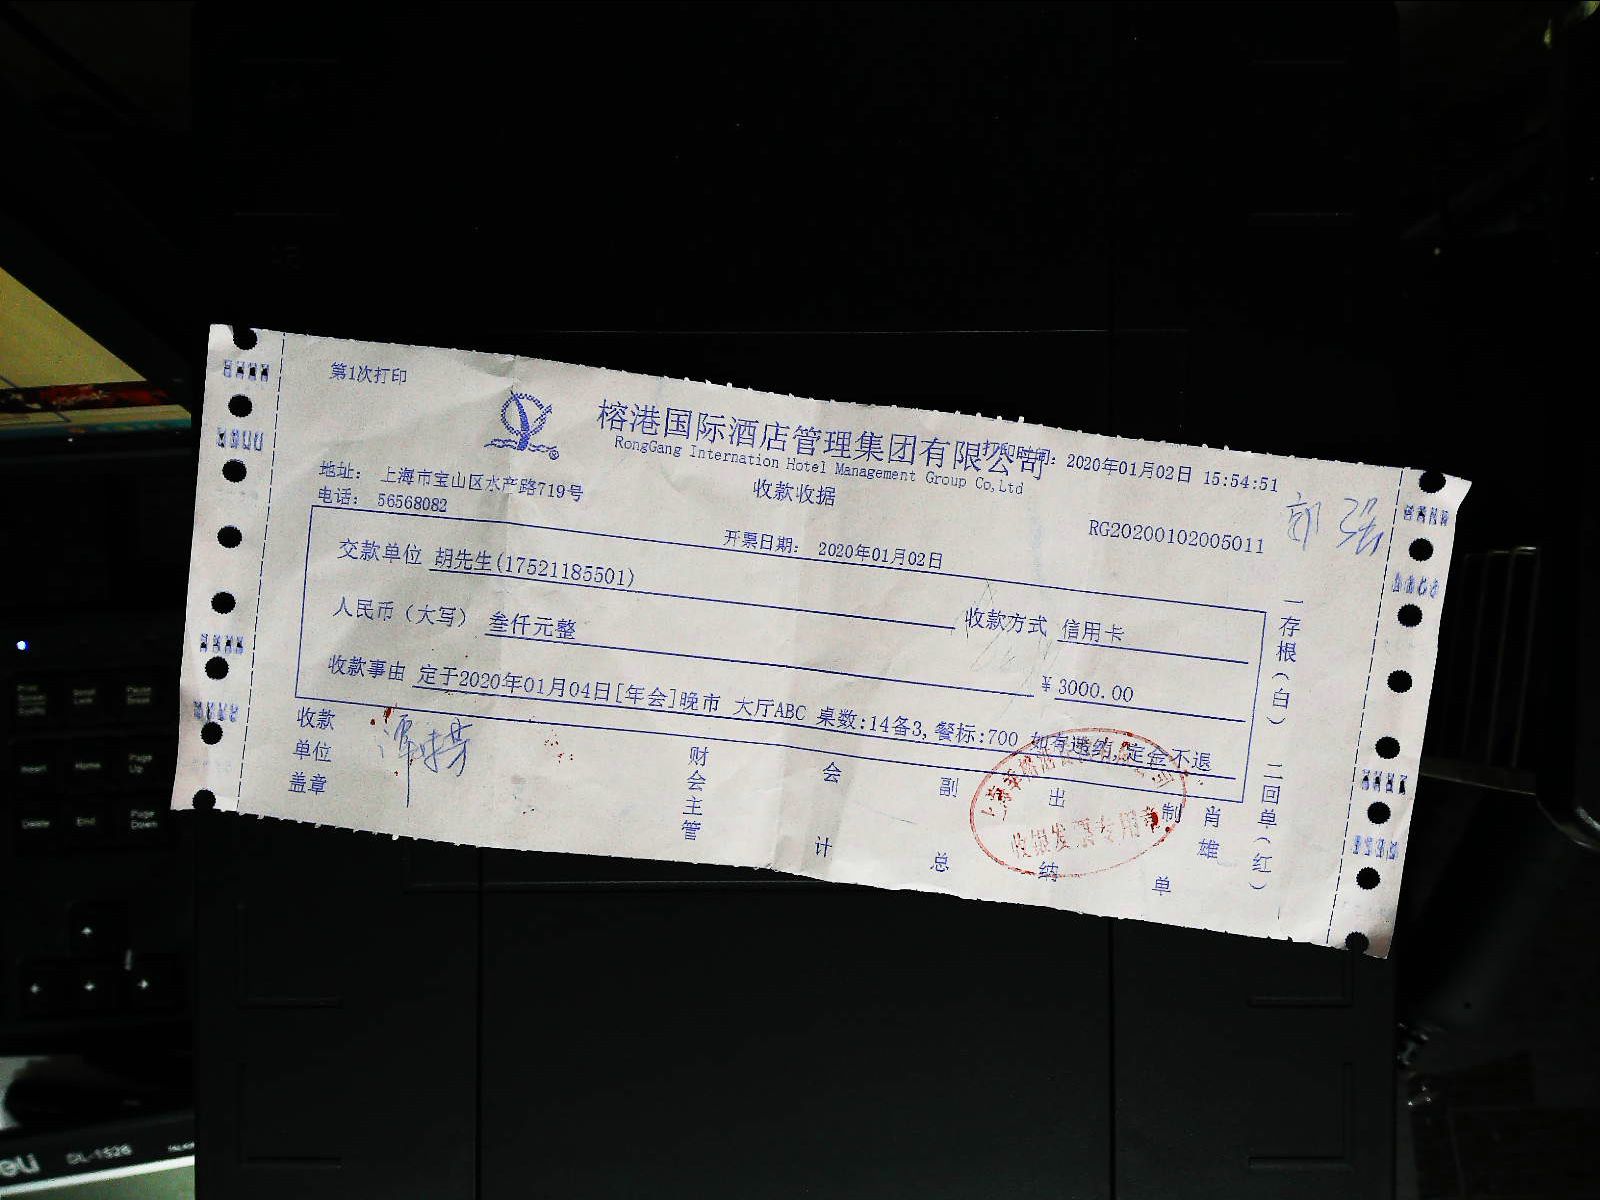 第1次打印
榕港国际酒店管理集团有限公司
打印时间: 2020年01月02日 15:54:51
RongGang Internation Hotel Management Group Co,Ltd
地址: 上海市宝山区水产路719号
收款收据
电话: 56568082
RG20200102005011
郭强
开票日期: 2020年01月02日
交款单位 胡先生(17521185501)
收款方式 信用卡
人民币（大写） 叁仟元整
¥ 3000.00
收款事由 定于2020年01月04日[年会]晚市 大厅ABC 桌数:14备3,餐标:700 如有逃纳,定金不退
收款单位盖章
财会主管
会计
副总
出纳
制单
肖雄
收银发票专用章
一存根(白) 二回单(红)
DL-1526